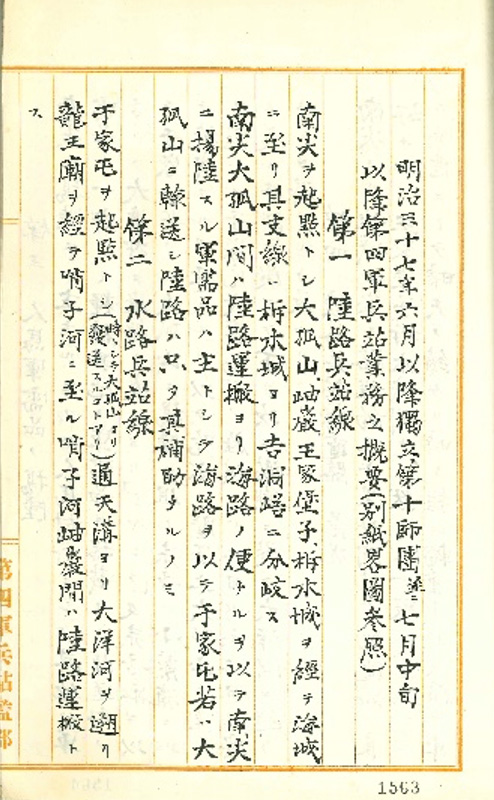 明治三十七年六月以降獨立第十師團並ニ七月中旬
以降第四軍兵站業務之概要(別紙畧圖参照)
第一 陸路兵站線
南尖ヲ起點トシ大孤山、岫巖、王家堡子、柝木城ヲ經テ海城
ニ至リ其支線ハ柝木城ヨリ吉洞峪ニ分岐ス
南尖大孤山間ハ陸路運搬ヨリ海路ノ便トルヲ以テ南尖
ニ揚陸スル軍需品ハ主トシテ海路ヲ以テ于家屯若ハ大
孤山ニ輸送シ陸路ハ只タ其補助タルノミ
第二 水路兵站線
于家屯ヲ起點トシ(時トシテ大孤山ヨリ發送スルコトアリ)通天溝ヨリ大洋河ヲ遡リ
龍王廟ヲ經テ哨子河ニ至ル哨子河岫巖間ハ陸路運搬ト
ス
第四軍兵站監部
1563